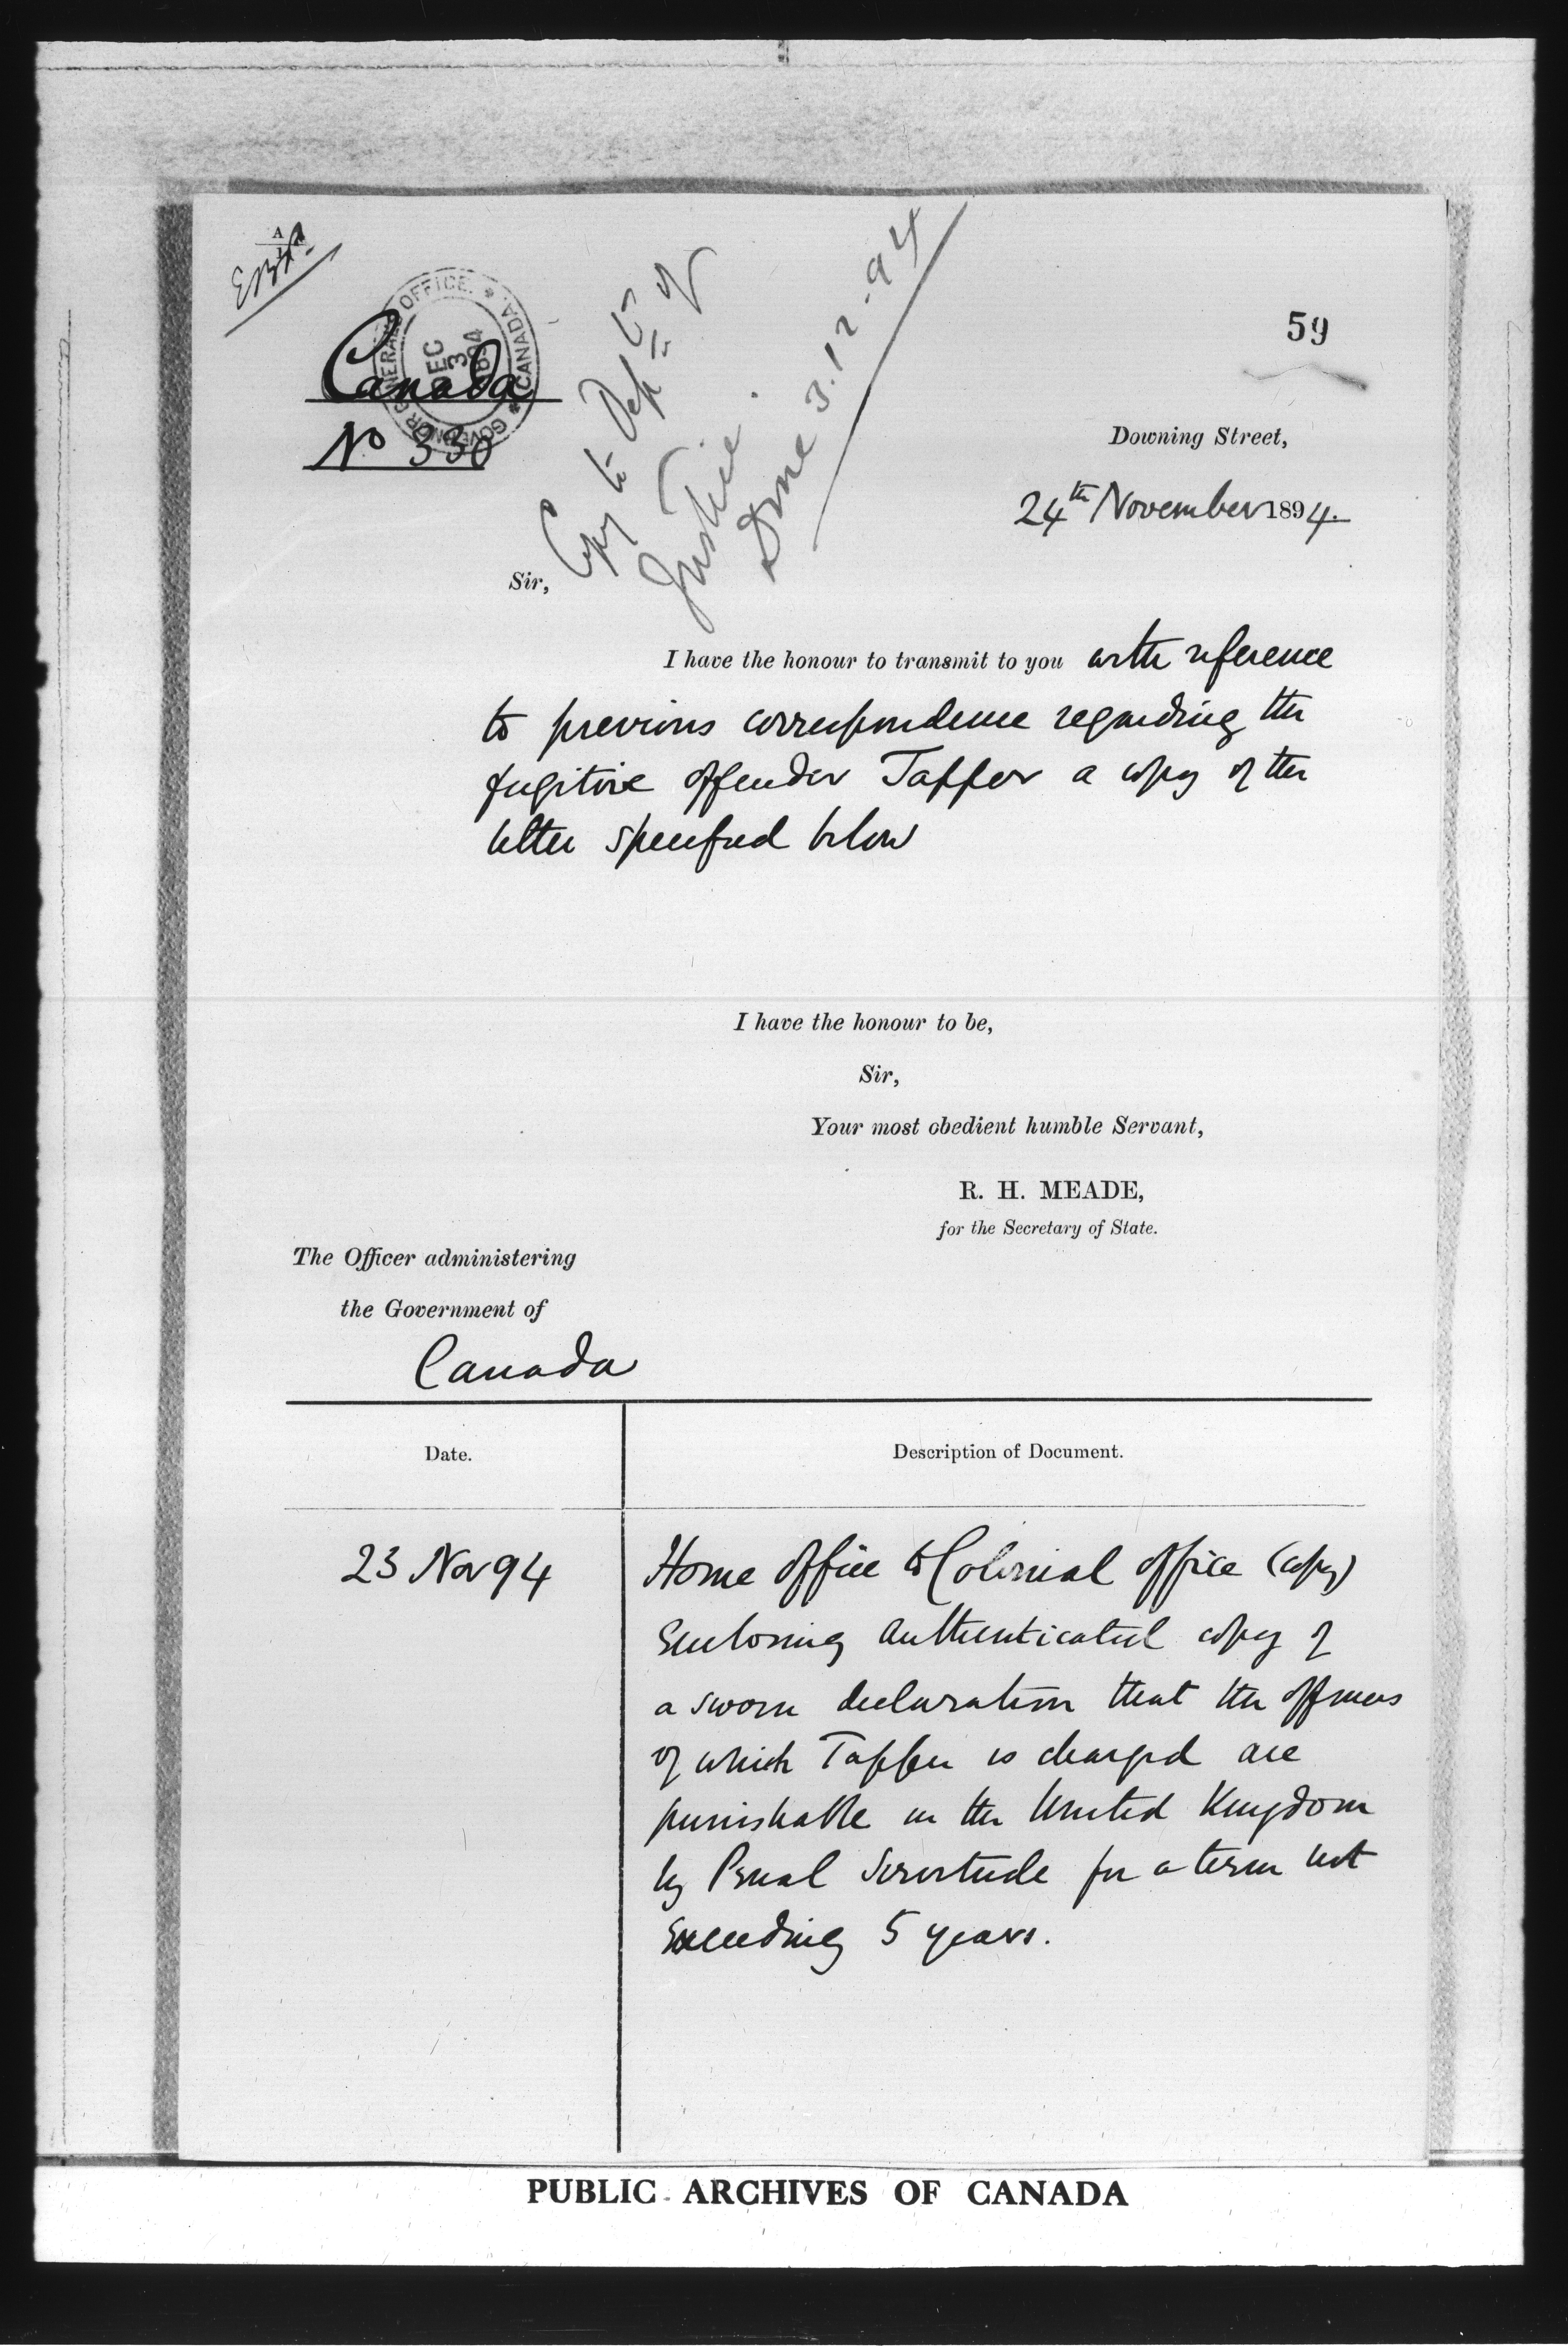 GOVERNOR GENERAL'S OFFICE. * CANADA. *
DEC
3
1894
Canada
No 330
Copy to Dept of
Justice.
Done 3.12.94
59
Downing Street,
24th November 1894.
Sir,
I have the honour to transmit to you with reference
to previous correspondence regarding the
fugitive offender Taffer a copy of the
letter specified below
I have the honour to be,
Sir,
Your most obedient humble Servant,
R. H. MEADE,
for the Secretary of State.
The Officer administering
the Government of
Canada
Date.
Description of Document.
23 Nov 94
Home Office to Colonial Office (copy)
Enclosing authenticated copy of
a sworn declaration that the offences
of which Taffer is charged are
punishable in the United Kingdom
by Penal Servitude for a term not
Exceeding 5 years.
PUBLIC ARCHIVES OF CANADA